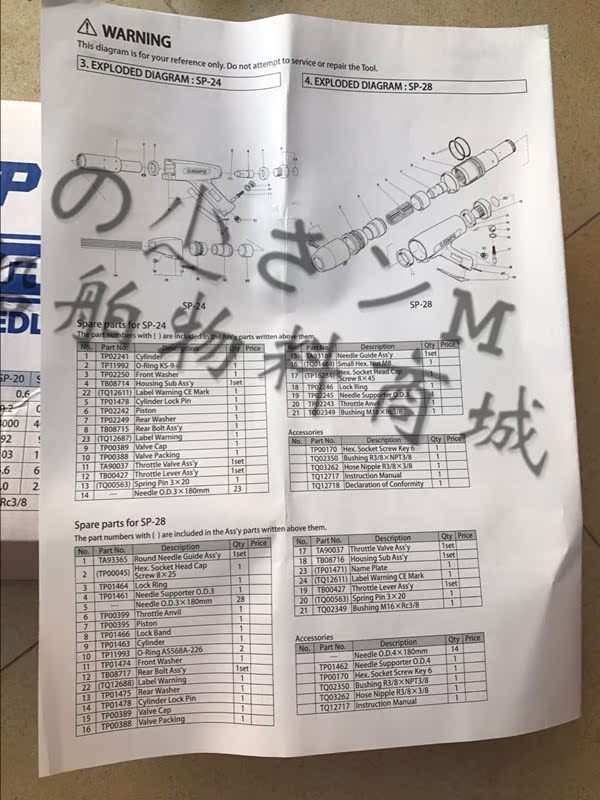 WARNING
This diagram is for your reference only. Do not attempt to service or repair the Tool.
3. EXPLODED DIAGRAM : SP-24
4. EXPLODED DIAGRAM : SP-28
SP-24
SP-28
の心さンM
船物料商城
Spare parts for SP-24
The part numbers with ( ) are included in the Ass'y parts written above them.
No. Part No. Description Qty Price
1 TP02241 Cylinder 1
2 TP11992 O-Ring KS-9 1
3 TP02250 Front Washer 1
4 TB08714 Housing Sub Ass'y 1set
22 (TQ12611) Label Warning CE Mark 1
5 TP01478 Cylinder Lock Pin 1
6 TP02242 Piston 1
7 TP02249 Rear Washer 1
8 TB08715 Rear Bolt Ass'y 1set
23 (TQ12687) Label Warning 1
9 TP00389 Valve Cap 1
10 TP00388 Valve Packing 1
11 TA90037 Throttle Valve Ass'y 1set
12 TB00427 Throttle Lever Ass'y 1set
13 (TQ00563) Spring Pin 3×20 1
14 — Needle O.D.3×180mm 23
No. Part No. Description Qty Price
15 TA93187 Needle Guide Ass'y 1set
16 (TQ01484) Small Hex. Nut M8 1
17 (TP16284) Hex. Socket Head Cap Screw 8×45 1
18 TP02246 Lock Ring 1
19 TP02245 Needle Supporter O.D.3 1
20 TP02243 Throttle Anvil 1
21 TQ02349 Bushing M16×Rc3/8 1
Accessories
No. Part No. Description Qty Price
TP00170 Hex. Socket Screw Key 6 1
TQ02350 Bushing R3/8×NPT3/8 1
TQ03262 Hose Nipple R3/8×3/8 1
TQ12717 Instruction Manual 1
TQ12718 Declaration of Conformity 1
Spare parts for SP-28
The part numbers with ( ) are included in the Ass'y parts written above them.
No. Part No. Description Qty Price
1 TA93365 Round Needle Guide Ass'y 1set
2 (TP00045) Hex. Socket Head Cap Screw 8×25 1
3 TP01464 Lock Ring 1
4 TP01461 Needle Supporter O.D.3 1
5 — Needle O.D.3×180mm 28
6 TP00399 Throttle Anvil 1
7 TP00395 Piston 1
8 TP01466 Lock Band 1
9 TP01463 Cylinder 1
10 TP11993 O-Ring AS568A-226 2
11 TP01474 Front Washer 1
12 TB08717 Rear Bolt Ass'y 1set
22 (TQ12688) Label Warning 1
13 TP01475 Rear Washer 1
14 TP01478 Cylinder Lock Pin 1
15 TP00389 Valve Cap 1
16 TP00388 Valve Packing 1
17 TA90037 Throttle Valve Ass'y 1set
18 TB08716 Housing Sub Ass'y 1set
23 (TP01471) Name Plate 1
24 (TQ12611) Label Warning CE Mark 1
19 TB00427 Throttle Lever Ass'y 1set
20 (TQ00563) Spring Pin 3×20 1
21 TQ02349 Bushing M16×Rc3/8 1
Accessories
No. Part No. Description Qty Price
— Needle O.D.4×180mm 14
TP01462 Needle Supporter O.D.4 1
TP00170 Hex. Socket Screw Key 6 1
TQ02350 Bushing R3/8×NPT3/8 1
TQ03262 Hose Nipple R3/8×3/8 1
TQ12717 Instruction Manual 1